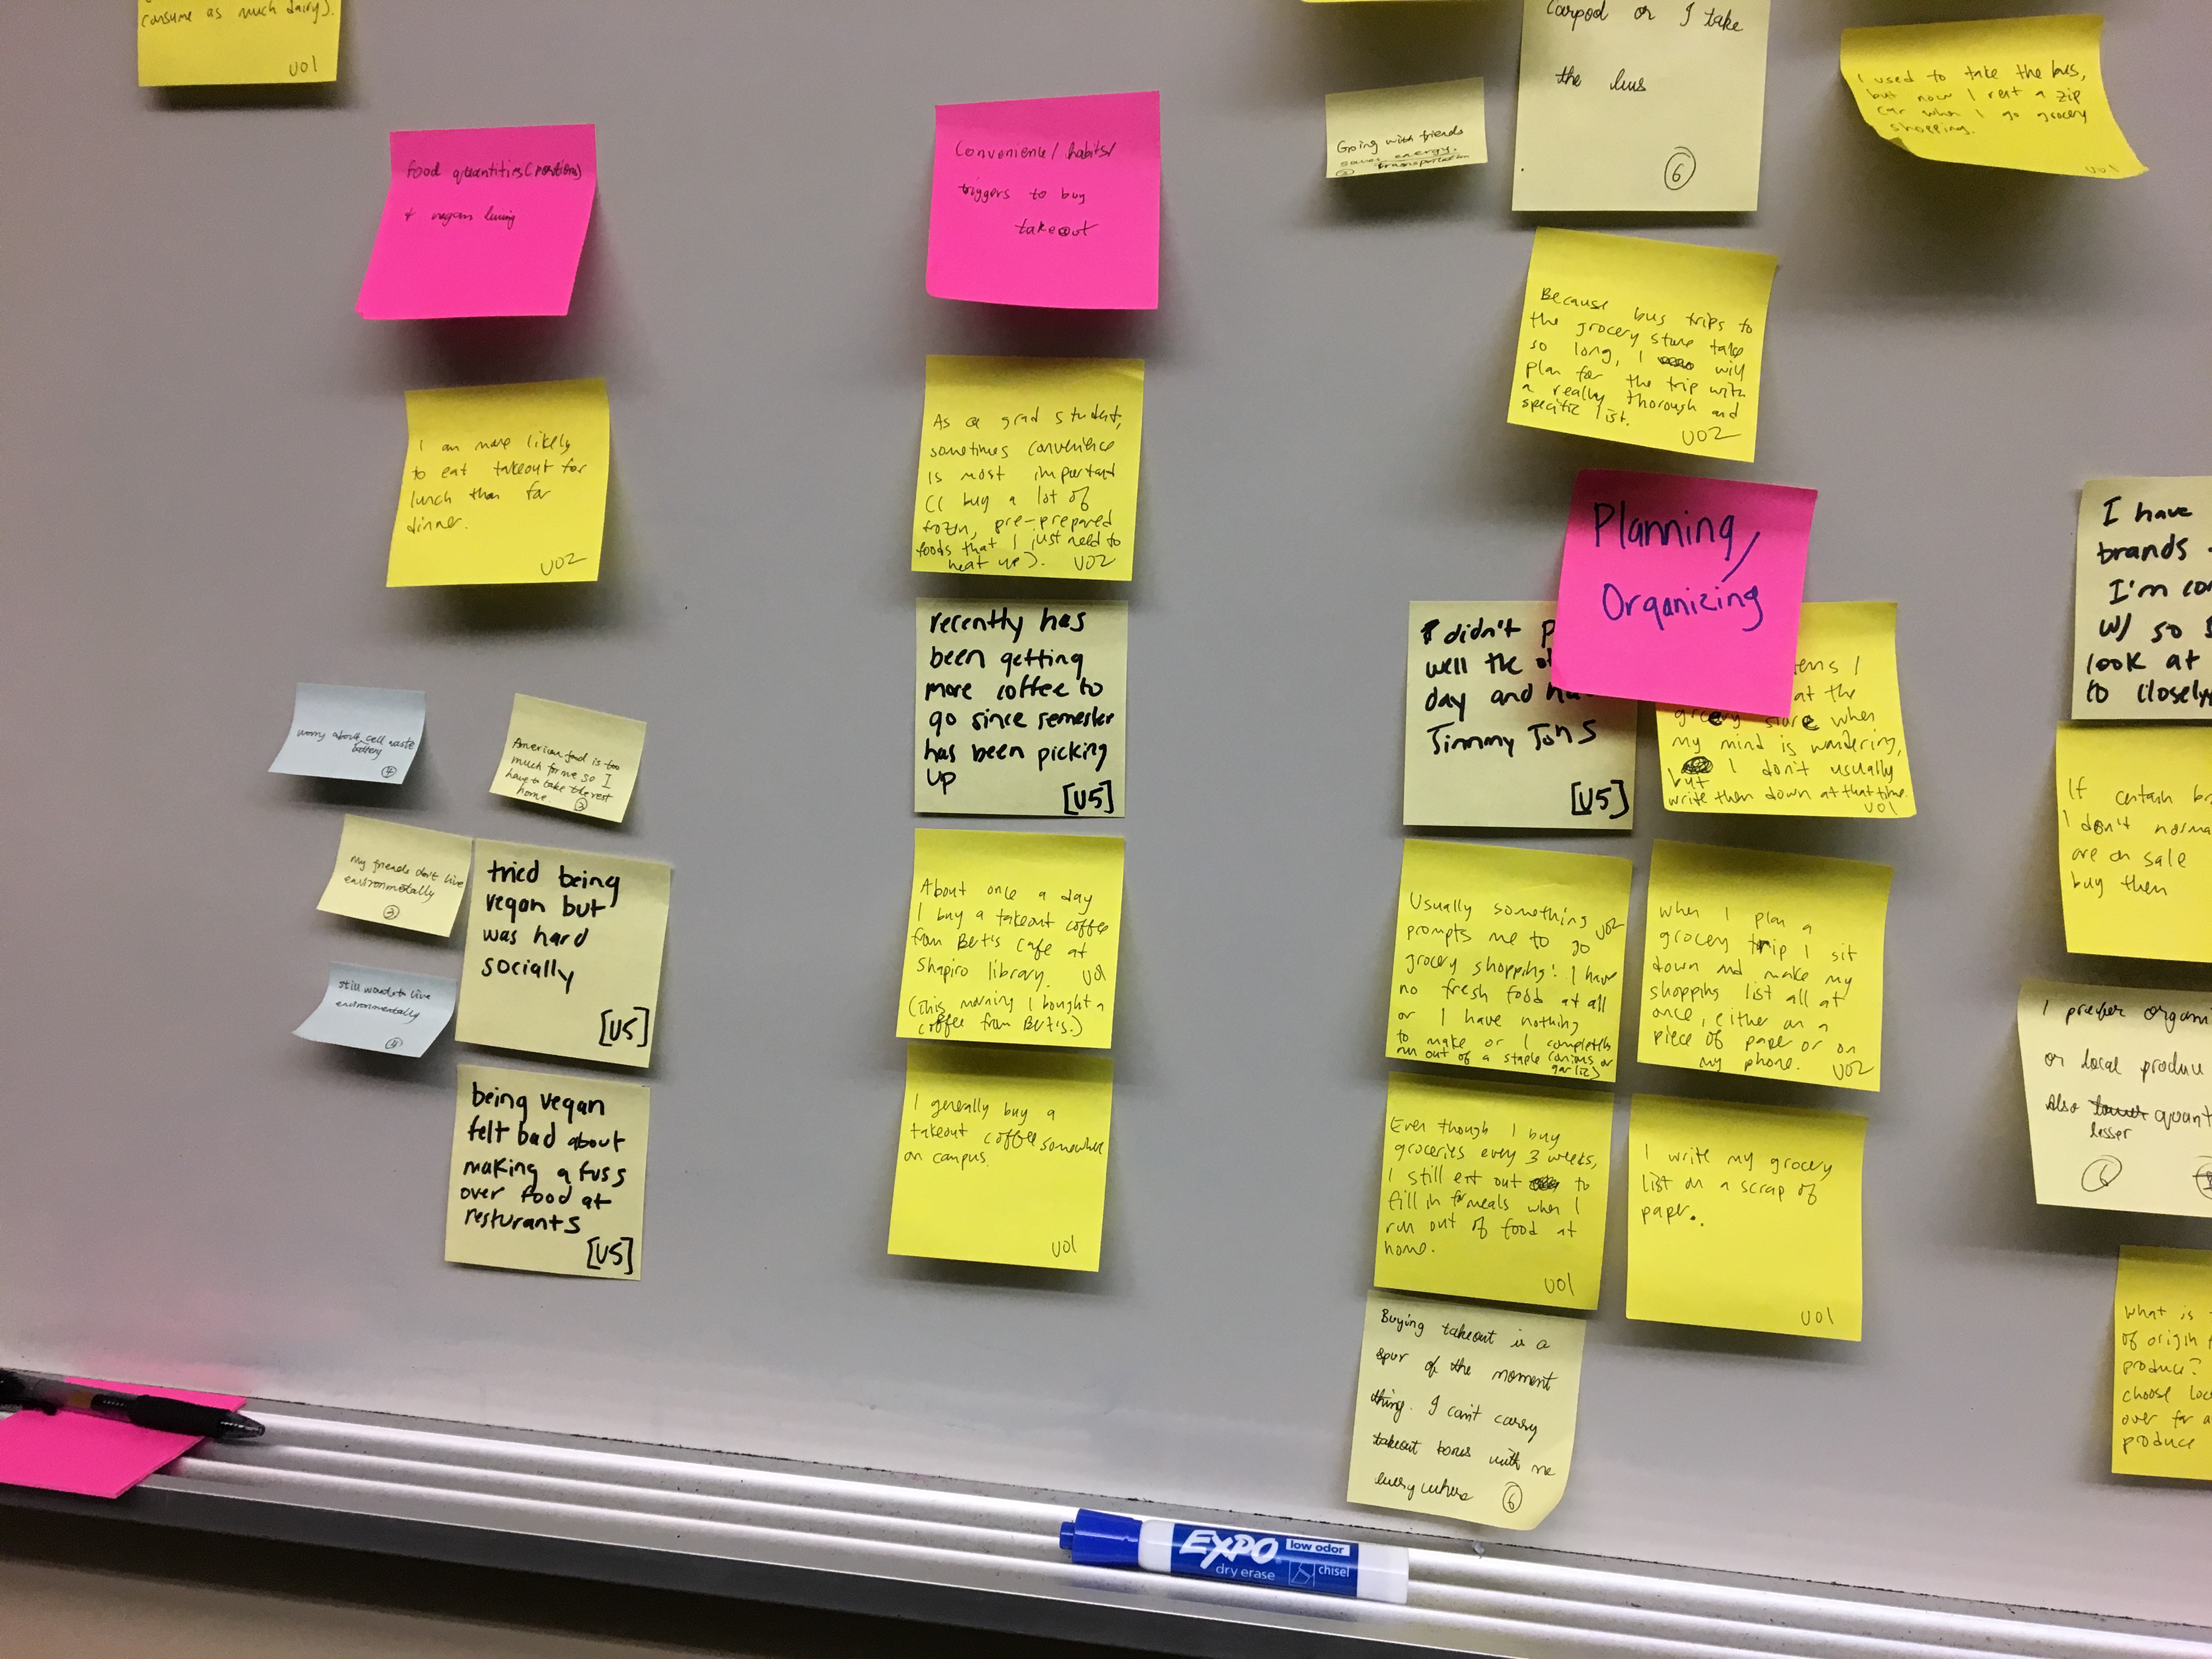 consume as much dairy).
U01
food quantities (portions)
+ vegan living
I am more likely
to eat takeout for
lunch than for
dinner.
U02
worry about cell waste
battery
4
American food is too
much for me so I
have to take the rest
home.
3
My friends don't live
environmentally
3
still wanted to live
environmentally
4
tried being
vegan but
was hard
socially
[U5]
being vegan
felt bad about
making a fuss
over food at
resturants
[U5]
Convenience/habits/
triggers to buy
takeout
As a grad student,
sometimes convenience
is most important
(I buy a lot of
frozen, pre-prepared
foods that I just need to
heat up). U02
recently has
been getting
more coffee to
go since semester
has been picking
up
[U5]
About once a day
I buy a takeout coffee
from Bert's Cafe at
Shapiro library. U01
(This morning I bought a
coffee from Bert's.)
I generally buy a
takeout coffee somewhere
on campus.
U01
Going with friends
saves energy.
transportation
Carpool or I take
the bus
6
I used to take the bus,
but now I rent a zip
car when I go grocery
shopping.
U01
Because bus trips to
the grocery store take
so long, I will
plan for the trip with
a really thorough and
specific list.
U02
Planning,
Organizing
I didn't p
well the ot
day and ha
Jimmy Johns
[U5]
tems I
at the
grocery store when
my mind is wandering,
but I don't usually
write them down at that time.
U01
Usually something U02
prompts me to go
grocery shopping: I have
no fresh food at all
or I have nothing
to make or I completely
run out of a staple (onions or
garlic)
When I plan a
grocery trip I sit
down and make my
shopping list all at
once, either on a
piece of paper or on
my phone. U02
Even though I buy
groceries every 3 weeks,
I still eat out to
fill in for meals when I
run out of food at
home.
U01
I write my grocery
list on a scrap of
paper.
U01
Buying takeout is a
spur of the moment
thing. I can't carry
takeout boxes with me
everywhere 6
I have
brands
I'm co
w/ so s
look at
to closely
If certain br
I don't norma
are on sale
buy them
I prefer organi
or local produce
Also lower quant
lesser
6
What is
of origin
produce?
choose loc
over for a
produce
EXPO
low odor
dry erase
chisel